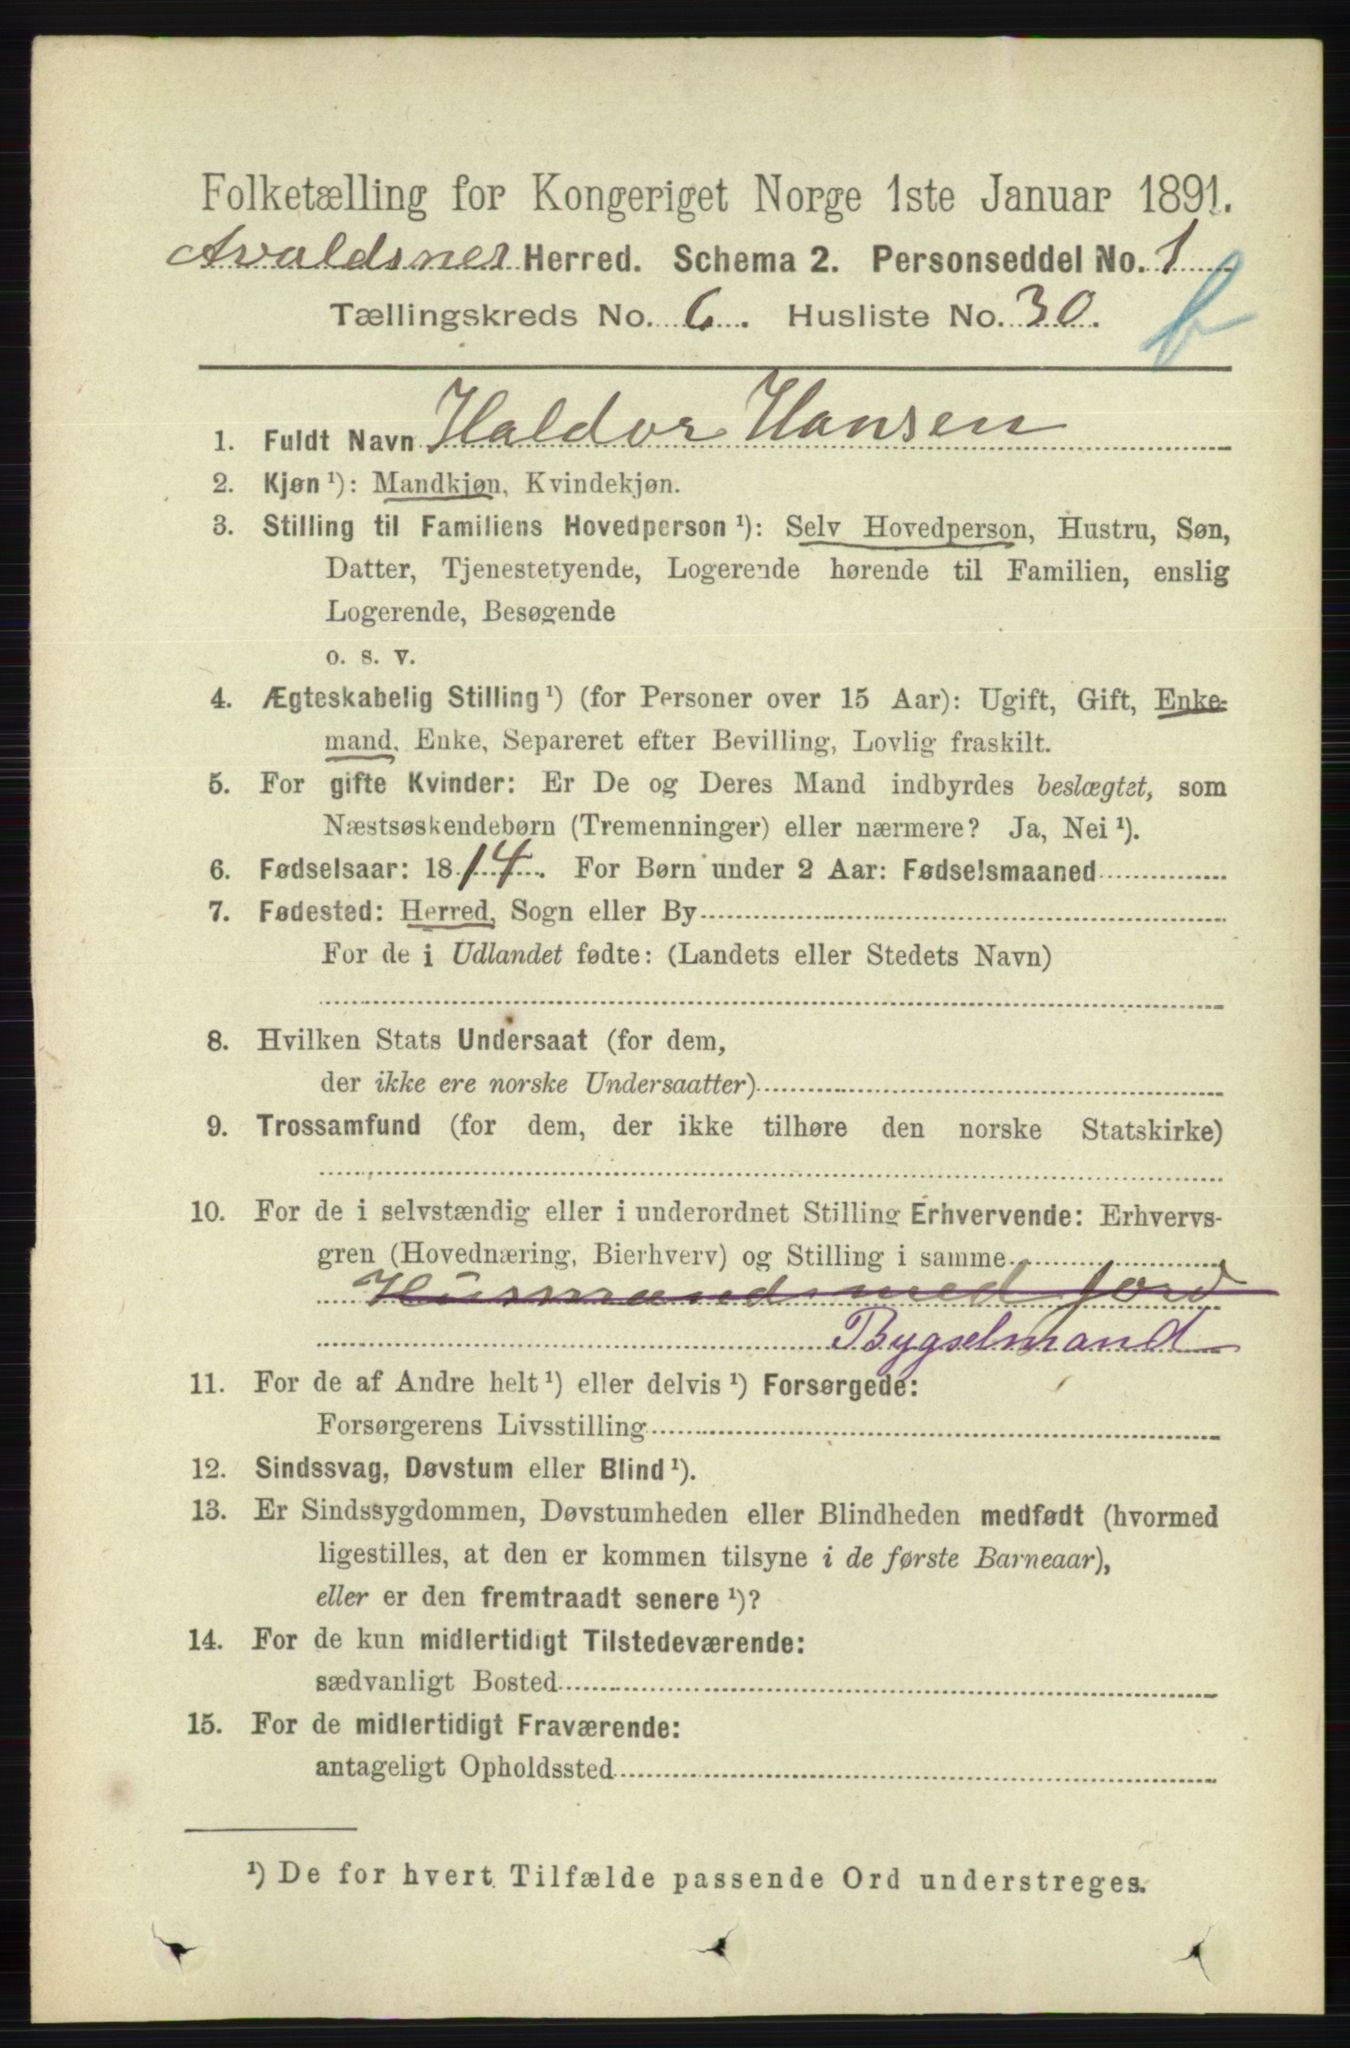 Folketælling for Kongeriget Norge 1ste Januar 1891.
Avaldsnes Herred. Schema 2. Personseddel No. 1
Tællingskreds No. 6. Husliste No. 30.
b
1. Fuldt Navn Haldor Hansen
2. Kjøn ¹): Mandkjøn, Kvindekjøn.
3. Stilling til Familiens Hovedperson ¹): Selv Hovedperson, Hustru, Søn,
Datter, Tjenestetyende, Logerende hørende til Familien, enslig
Logerende, Besøgende
o. s. v.
4. Ægteskabelig Stilling ¹) (for Personer over 15 Aar): Ugift, Gift, Enke-
mand, Enke, Separeret efter Bevilling, Lovlig fraskilt.
5. For gifte Kvinder: Er De og Deres Mand indbyrdes beslægtet, som
Næstsøskendebørn (Tremenninger) eller nærmere? Ja, Nei ¹).
6. Fødselsaar: 1814. For Børn under 2 Aar: Fødselsmaaned
7. Fødested: Herred, Sogn eller By
For de i Udlandet fødte: (Landets eller Stedets Navn)
8. Hvilken Stats Undersaat (for dem,
der ikke ere norske Undersaatter)
9. Trossamfund (for dem, der ikke tilhøre den norske Statskirke)
10. For de i selvstændig eller i underordnet Stilling Erhvervende: Erhvervs-
gren (Hovednæring, Bierhverv) og Stilling i samme
Husmand med Jord
Bygselmand
11. For de af Andre helt ¹) eller delvis ¹) Forsørgede:
Forsørgerens Livsstilling
12. Sindssvag, Døvstum eller Blind ¹).
13. Er Sindssygdommen, Døvstumheden eller Blindheden medfødt (hvormed
ligestilles, at den er kommen tilsyne i de første Barneaar),
eller er den fremtraadt senere ¹)?
14. For de kun midlertidigt Tilstedeværende:
sædvanligt Bosted
15. For de midlertidigt Fraværende:
antageligt Opholdssted
¹) De for hvert Tilfælde passende Ord understreges.